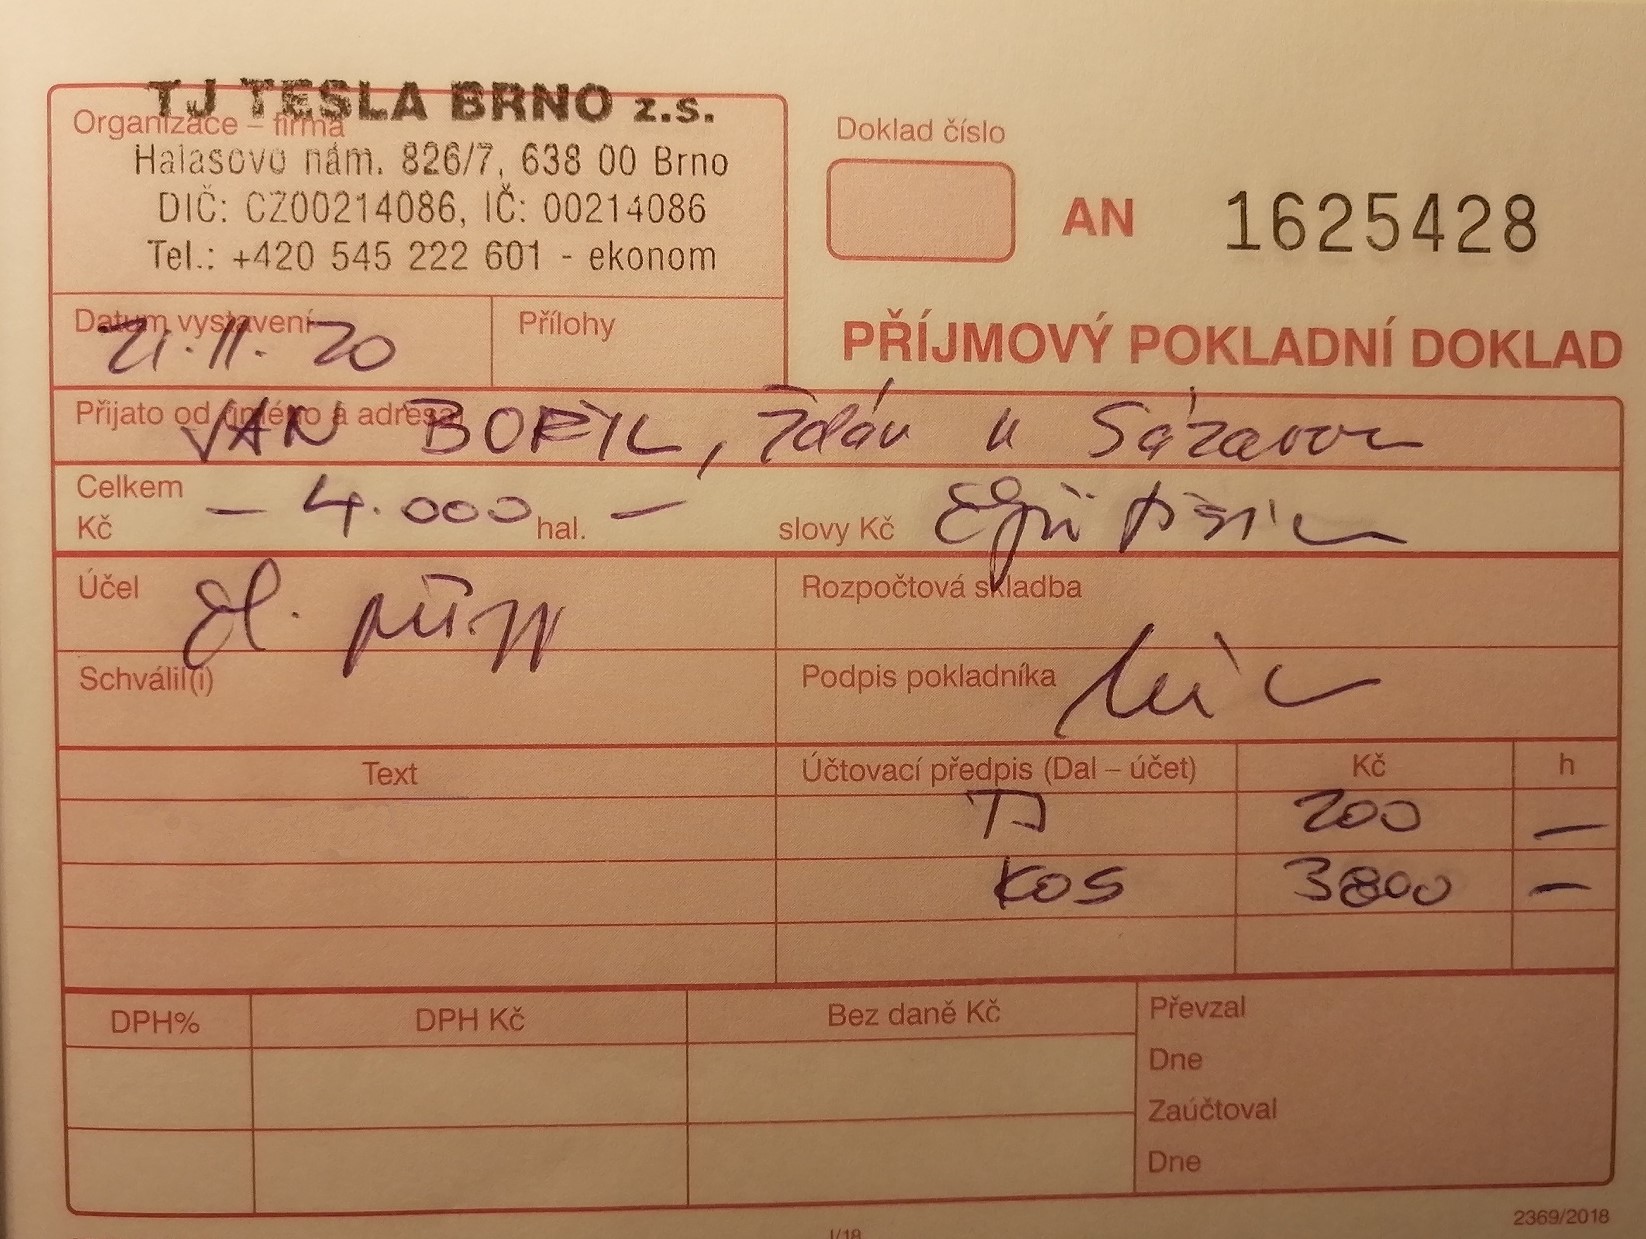 TJ TESLA BRNO z.s.
Organizace – firma
Halasovo nám. 826/7, 638 00 Brno
DIČ: CZ00214086, IČ: 00214086
Tel.: +420 545 222 601 - ekonom
Doklad číslo
AN 1625428
PŘÍJMOVÝ POKLADNÍ DOKLAD
Datum vystavení
21.11.20
Přílohy
Přijato od (jméno a adresa)
VAN BORYL, Ždár n Sázavou
Celkem
Kč – 4.000 hal. –
slovy Kč Čtyři tisíc
Účel
čl. přísp
Rozpočtová skladba
Schválil(i)
Podpis pokladníka
Text Účtovací předpis (Dal – účet) Kč h
TJ 200 –
KOS 3800 –
DPH% DPH Kč Bez daně Kč
Převzal
Dne
Zaúčtoval
Dne
2369/2018
I/18